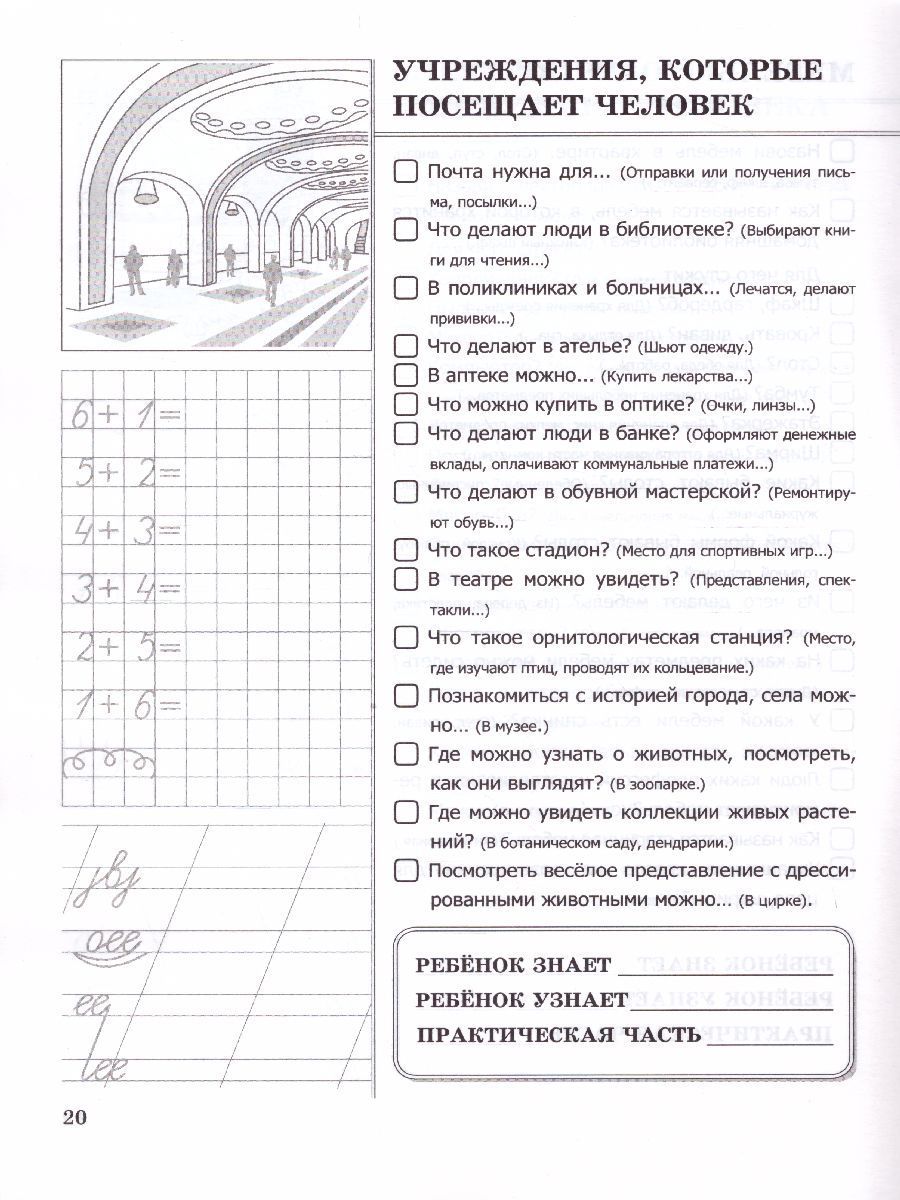 УЧРЕЖДЕНИЯ, КОТОРЫЕ
ПОСЕЩАЕТ ЧЕЛОВЕК
Почта нужна для... (Отправки или получения пись-
ма, посылки...)
Что делают люди в библиотеке? (Выбирают кни-
ги для чтения...)
В поликлиниках и больницах... (Лечатся, делают
прививки...)
Что делают в ателье? (Шьют одежду.)
В аптеке можно... (Купить лекарства...)
Что можно купить в оптике? (Очки, линзы...)
Что делают люди в банке? (Оформляют денежные
вклады, оплачивают коммунальные платежи...)
Что делают в обувной мастерской? (Ремонтиру-
ют обувь...)
Что такое стадион? (Место для спортивных игр...)
В театре можно увидеть? (Представления, спек-
такли...)
Что такое орнитологическая станция? (Место,
где изучают птиц, проводят их кольцевание.)
Познакомиться с историей города, села мож-
но... (В музее.)
Где можно узнать о животных, посмотреть,
как они выглядят? (В зоопарке.)
Где можно увидеть коллекции живых расте-
ний? (В ботаническом саду, дендрарии.)
Посмотреть весёлое представление с дресси-
рованными животными можно... (В цирке).
РЕБЁНОК ЗНАЕТ
РЕБЁНОК УЗНАЕТ
ПРАКТИЧЕСКАЯ ЧАСТЬ
6+ 1=
5+ 2=
4+ 3=
3+ 4=
2+ 5=
1+ 6=
20